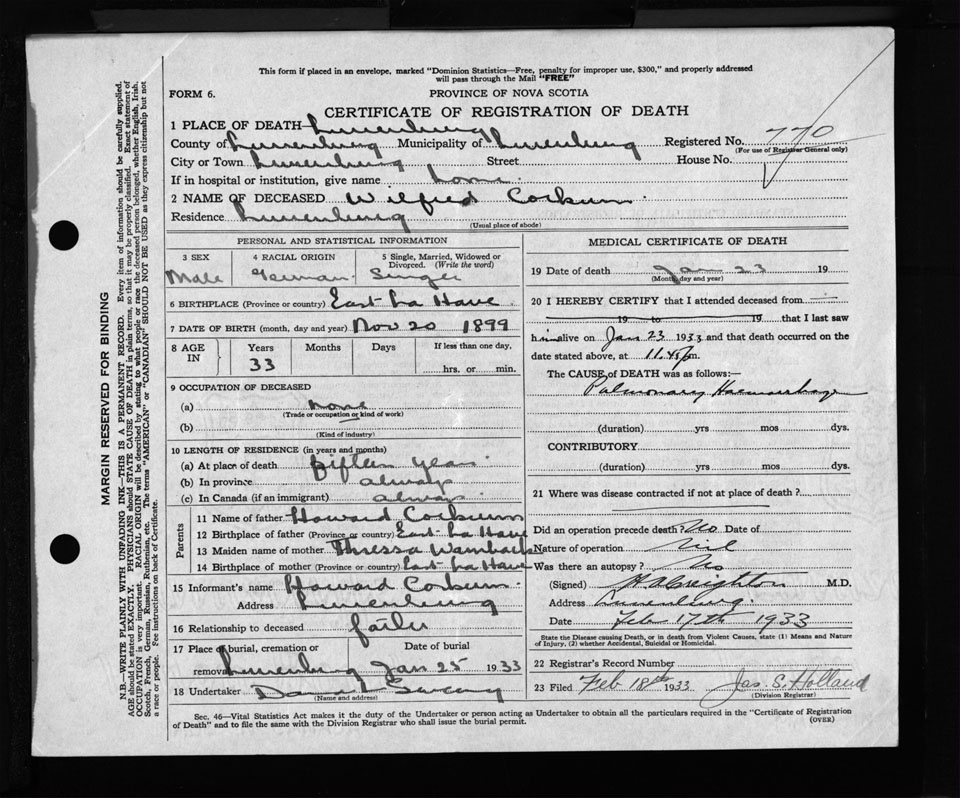 This form if placed in an envelope, marked "Dominion Statistics—Free, penalty for improper use, $300," and properly addressed
will pass through the Mail "FREE"
FORM 6.
PROVINCE OF NOVA SCOTIA
CERTIFICATE OF REGISTRATION OF DEATH
1 PLACE OF DEATH—Lunenburg
County of Lunenburg Municipality of Lunenburg Registered No. 770
(For use of Registrar General only)
City or Town Lunenburg Street House No.
If in hospital or institution, give name home
2 NAME OF DECEASED Wilfred Corkum
Residence Lunenburg
(Usual place of abode)
PERSONAL AND STATISTICAL INFORMATION
3 SEX 4 RACIAL ORIGIN 5 Single, Married, Widowed or
Divorced. (Write the word)
Male German Single
6 BIRTHPLACE (Province or country) East La Have
7 DATE OF BIRTH (month, day and year) Nov 20 1899
8 AGE IN Years Months Days If less than one day.
33 hrs. or min.
9 OCCUPATION OF DECEASED
(a) none
(Trade or occupation or kind of work)
(b)
(Kind of industry)
10 LENGTH OF RESIDENCE (in years and months)
(a) At place of death fifteen years
(b) In province always
(c) In Canada (if an immigrant) always
Parents
11 Name of father Howard Corkum
12 Birthplace of father (Province or country) East La Have
13 Maiden name of mother Thressa Wambach
14 Birthplace of mother (Province or country) East La Have
15 Informant's name Howard Corkum
Address Lunenburg
16 Relationship to deceased father
17 Place of burial, cremation or Date of burial
removal Lunenburg Jan 25 1933
18 Undertaker
(Name and address)
MEDICAL CERTIFICATE OF DEATH
19 Date of death Jan 23 19
(Month, day and year)
20 I HEREBY CERTIFY that I attended deceased from
19 to 19 that I last saw
him alive on Jan 23 1933 and that death occurred on the
date stated above, at 11.45 p m.
The CAUSE OF DEATH was as follows:—
Pulmonary Haemorrhage
(duration) yrs mos dys.
CONTRIBUTORY
(duration) yrs mos dys.
21 Where was disease contracted if not at place of death?
Did an operation precede death? No Date of
Nature of operation nil
Was there an autopsy? No
(Signed) H A Creighton M.D.
Address Lunenburg
Date Feb 17th 1933
State the Disease causing Death, or in death from Violent Causes, state (1) Means and Nature
of Injury, (2) whether Accidental, Suicidal or Homicidal.
22 Registrar's Record Number
23 Filed Feb 18th 1933 Jas. S. Holland
(Division Registrar)
Sec. 46—Vital Statistics Act makes it the duty of the Undertaker or person acting as Undertaker to obtain all the particulars required in the "Certificate of Registration
of Death" and to file the same with the Division Registrar who shall issue the burial permit. (OVER)
MARGIN RESERVED FOR BINDING
N.B.—WRITE PLAINLY WITH UNFADING INK—THIS IS A PERMANENT RECORD. Every item of information should be carefully supplied.
AGE should be stated EXACTLY. PHYSICIANS should STATE CAUSE OF DEATH in plain terms, so that it may be properly classified. Exact statement of
OCCUPATION is very important. RACIAL ORIGIN will be described by stating to what people or race the deceased person belonged, whether English, Irish,
Scotch, French, German, Russian, Ruthenian, etc. The terms "AMERICAN" or "CANADIAN" SHOULD NOT BE USED as they express citizenship but not
a race or people. Fee instructions on back of Certificate.